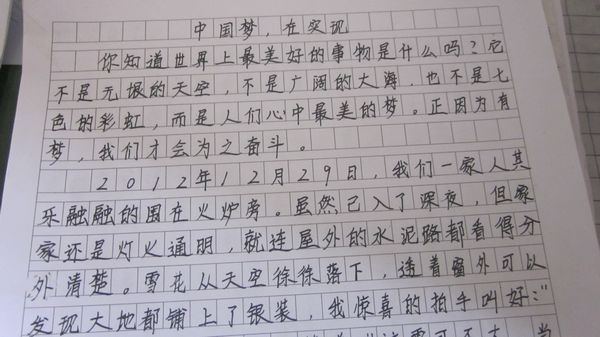 中国梦,在实现
你知道世界上最美好的事物是什么吗?它
不是无垠的天空,不是广阔的大海,也不是七
色的彩虹,而是人们心中最美的梦。正因为有
梦,我们才会为之奋斗。
2012年12月29日,我们一家人其
乐融融的围在火炉旁。虽然已入了深夜,但家
家还是灯火通明,就连屋外的水泥路都看得分
外清楚。雪花从天空徐徐落下,透着窗外可以
发现大地都铺上了银装,我惊喜的拍手叫好:"